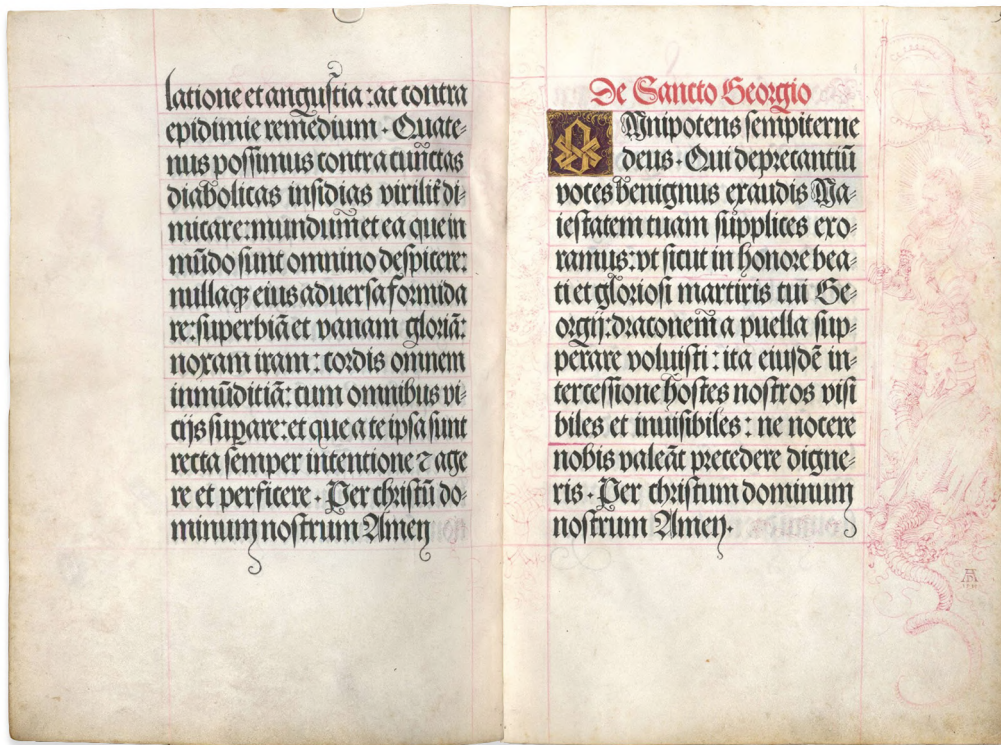 latione et angustia : ac contra
epidimie remedium . Quate-
nus possimus contra cunctas
diabolicas insidias virilit̃ di-
micare: mundum et ea que in
mūdo sunt omnino despicere:
nullaqꝫ eius aduersa formida
re: superbiā et vanam gloriā:
noxam iram : cordis omnem
inmūditiā: cum omnibus vi-
cijs suꝑare: et que a te ipsa sunt
recta semper intentione ⁊ age
re et perficere . Per christū do-
minum nostrum Amen
De Sancto Georgio
OMnipotens sempiterne
deus . Qui deprecantiū
voces benignus exaudis Ma-
iestatem tuam supplices exo-
ramus: vt sicut in honore bea-
ti et gloriosi martiris tui Ge-
orgij: draconem a puella sup-
perare voluisti : ita eiusdē in-
tercessione hostes nostros visi
biles et inuisibiles : ne nocere
nobis valeāt precedere digne-
ris . Per christum dominum
nostrum Amen.